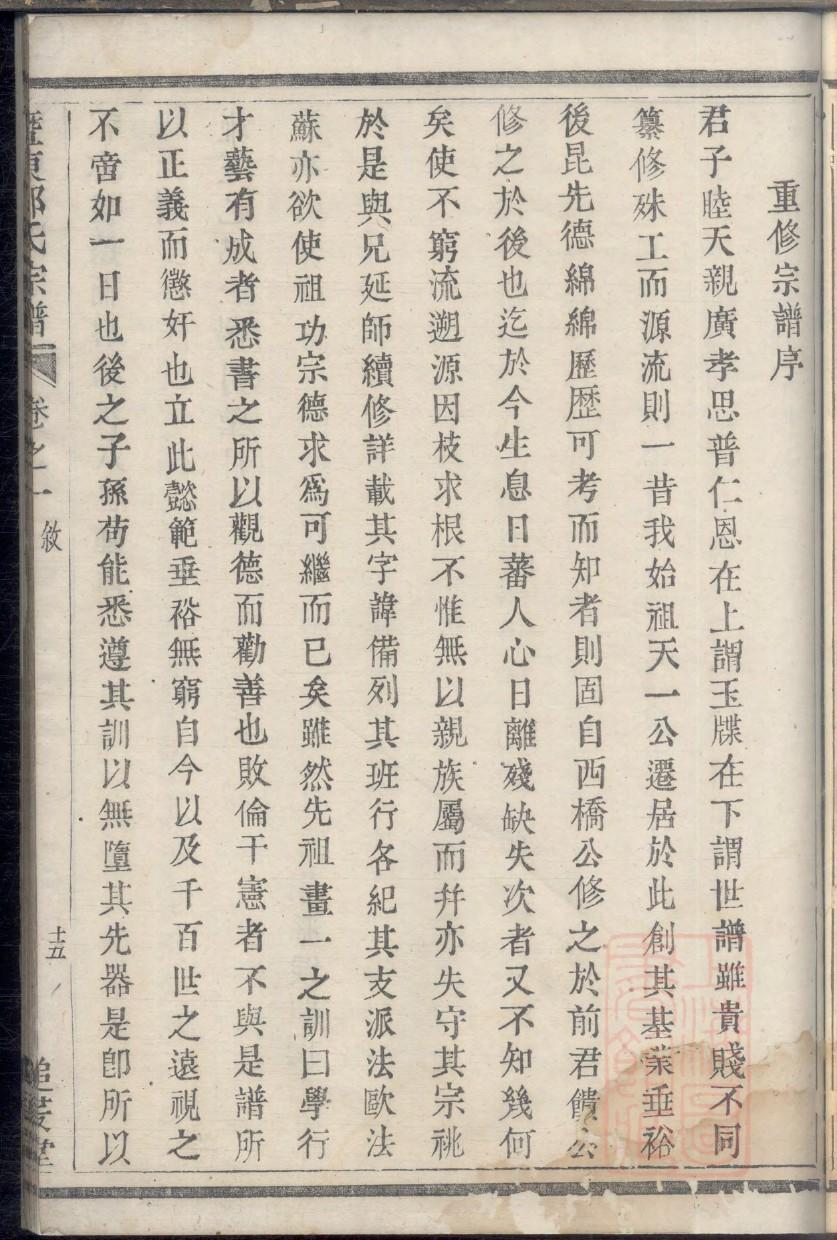 重修宗譜序
君子睦天親廣孝思普仁恩在上謂玉牒在下謂世譜雖貴賤不同
纂修殊工而源流則一昔我始祖天一公遷居於此創其基業垂裕
後昆先德綿綿歷歴可考而知者則固自西橋公修之於前君饋公
修之於後也迄於今生息日蕃人心日離殘缺失次者又不知幾何
矣使不窮流遡源因枝求根不惟無以親族屬而幷亦失守其宗祧
於是與兄延師續修詳載其字諱備列其班行各紀其支派法歐法
蘇亦欲使祖功宗德求爲可繼而已矣雖然先祖畫一之訓曰學行
才藝有成者悉書之所以觀德而勸善也敗倫干憲者不與是譜所
以正義而懲奸也立此懿範垂裕無窮自今以及千百世之遠視之
不啻如一日也後之子孫苟能悉遵其訓以無墮其先器是卽所以
東 氏宗譜 卷之一 敘 十五